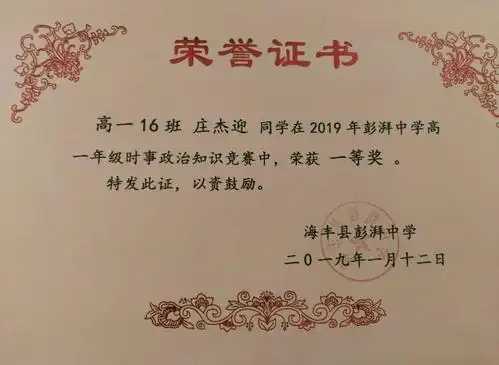 荣誉证书
高一16班 庄杰迎 同学在2019年彭湃中学高
一年级时事政治知识竞赛中，荣获 一等奖 。
特发此证，以资鼓励。
海丰县彭湃中学
二0一九年一月十二日